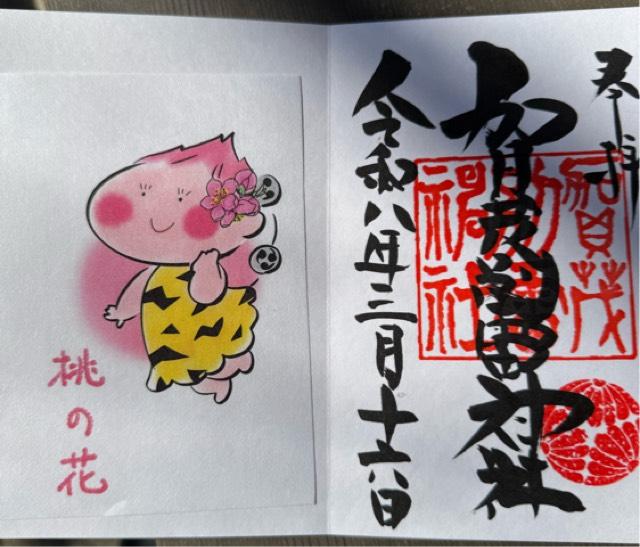 奉拝
賀茂別雷神社
令和八年三月十六日
賀茂
別雷
神社
桃の花